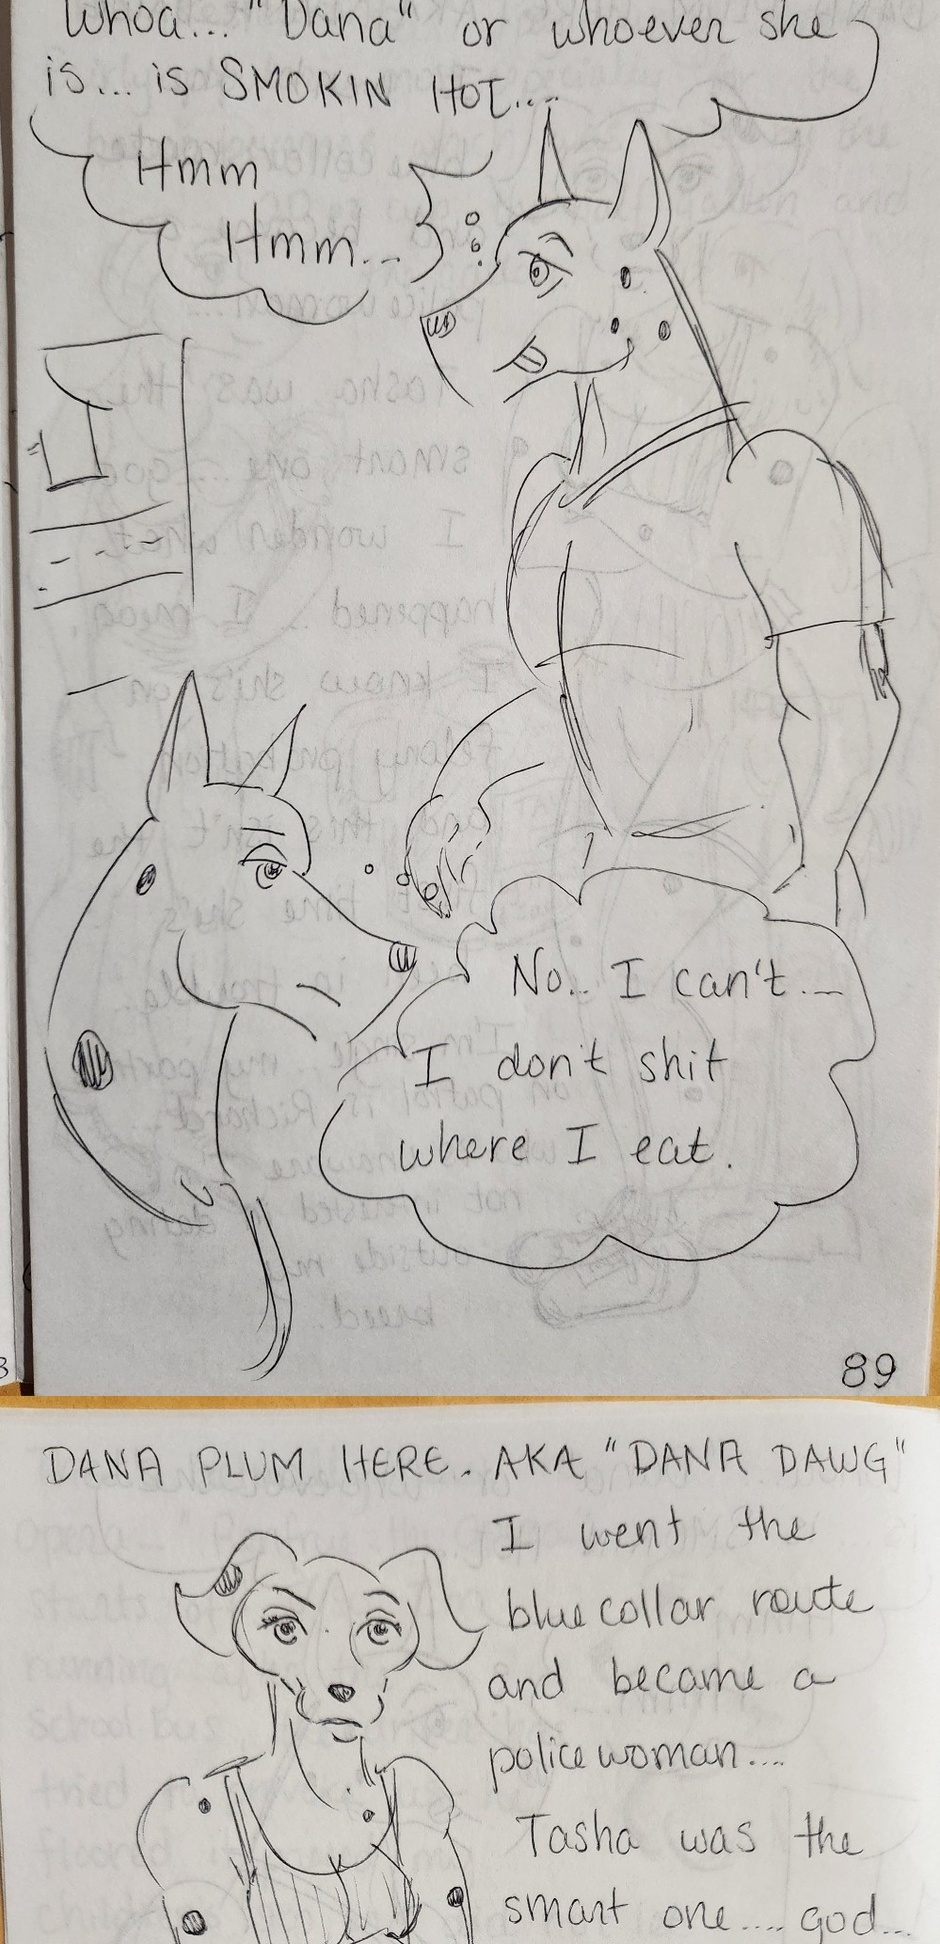 Whoa... "Dana" or whoever she
is... is SMOKIN HOT....
Hmm
Hmm...
No.. I can't...
I don't shit
where I eat.
89
DANA PLUM HERE. AKA "DANA DAWG"
I went the
blue collar route
and became a
police woman....
Tasha was the
smart one.... god...